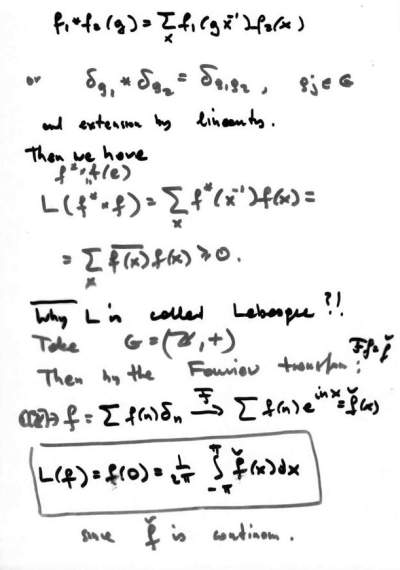 f₁*f₂(g) = Σₓ f₁(gx⁻¹) f₂(x)
or δ_{g₁} * δ_{g₂} = δ_{g₁g₂}, gⱼ ∈ G
and extension by linearity.
Then we have
f*·f(e)
L(f* * f) = Σₓ f*(x⁻¹) f(x) =
= Σₓ \overline{f(x)} f(x) ≥ 0.
Why L is called Lebesgue ?!!
Take G = (ℤ, +)
Then by the Fourier transform: Ff = f̌
f = Σ f(n) δₙ →^F Σ f(n) e^{inx} = f̌(x)
L(f) = f(0) = 1/2π ∫_{-π}^{π} f̌(x) dx
since f̌ is continuous.